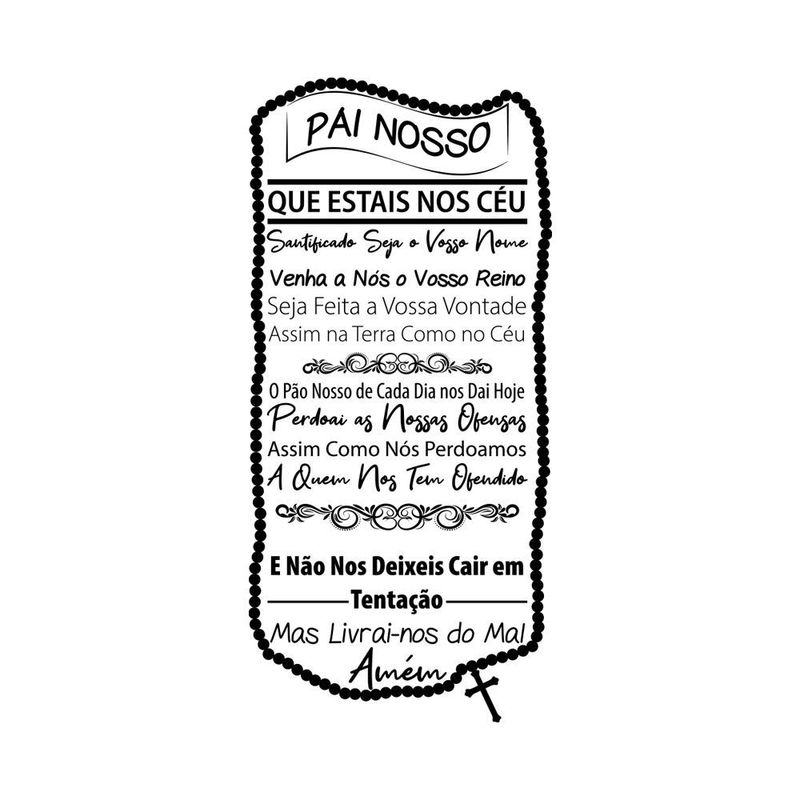 PAI NOSSO
QUE ESTAIS NOS CÉU
Santificado Seja o Vosso Nome
Venha a Nós o Vosso Reino
Seja Feita a Vossa Vontade
Assim na Terra Como no Céu
O Pão Nosso de Cada Dia nos Dai Hoje
Perdoai as Nossas Ofensas
Assim Como Nós Perdoamos
A Quem Nos Tem Ofendido
E Não Nos Deixeis Cair em
Tentação
Mas Livrai-nos do Mal
Amém